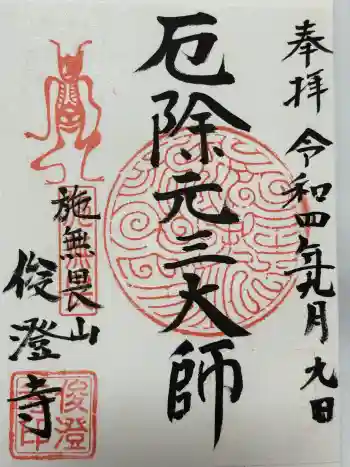 奉拝
令和四年九月九日
厄除元三大師
施無畏山
俊澄寺
俊澄
寺印